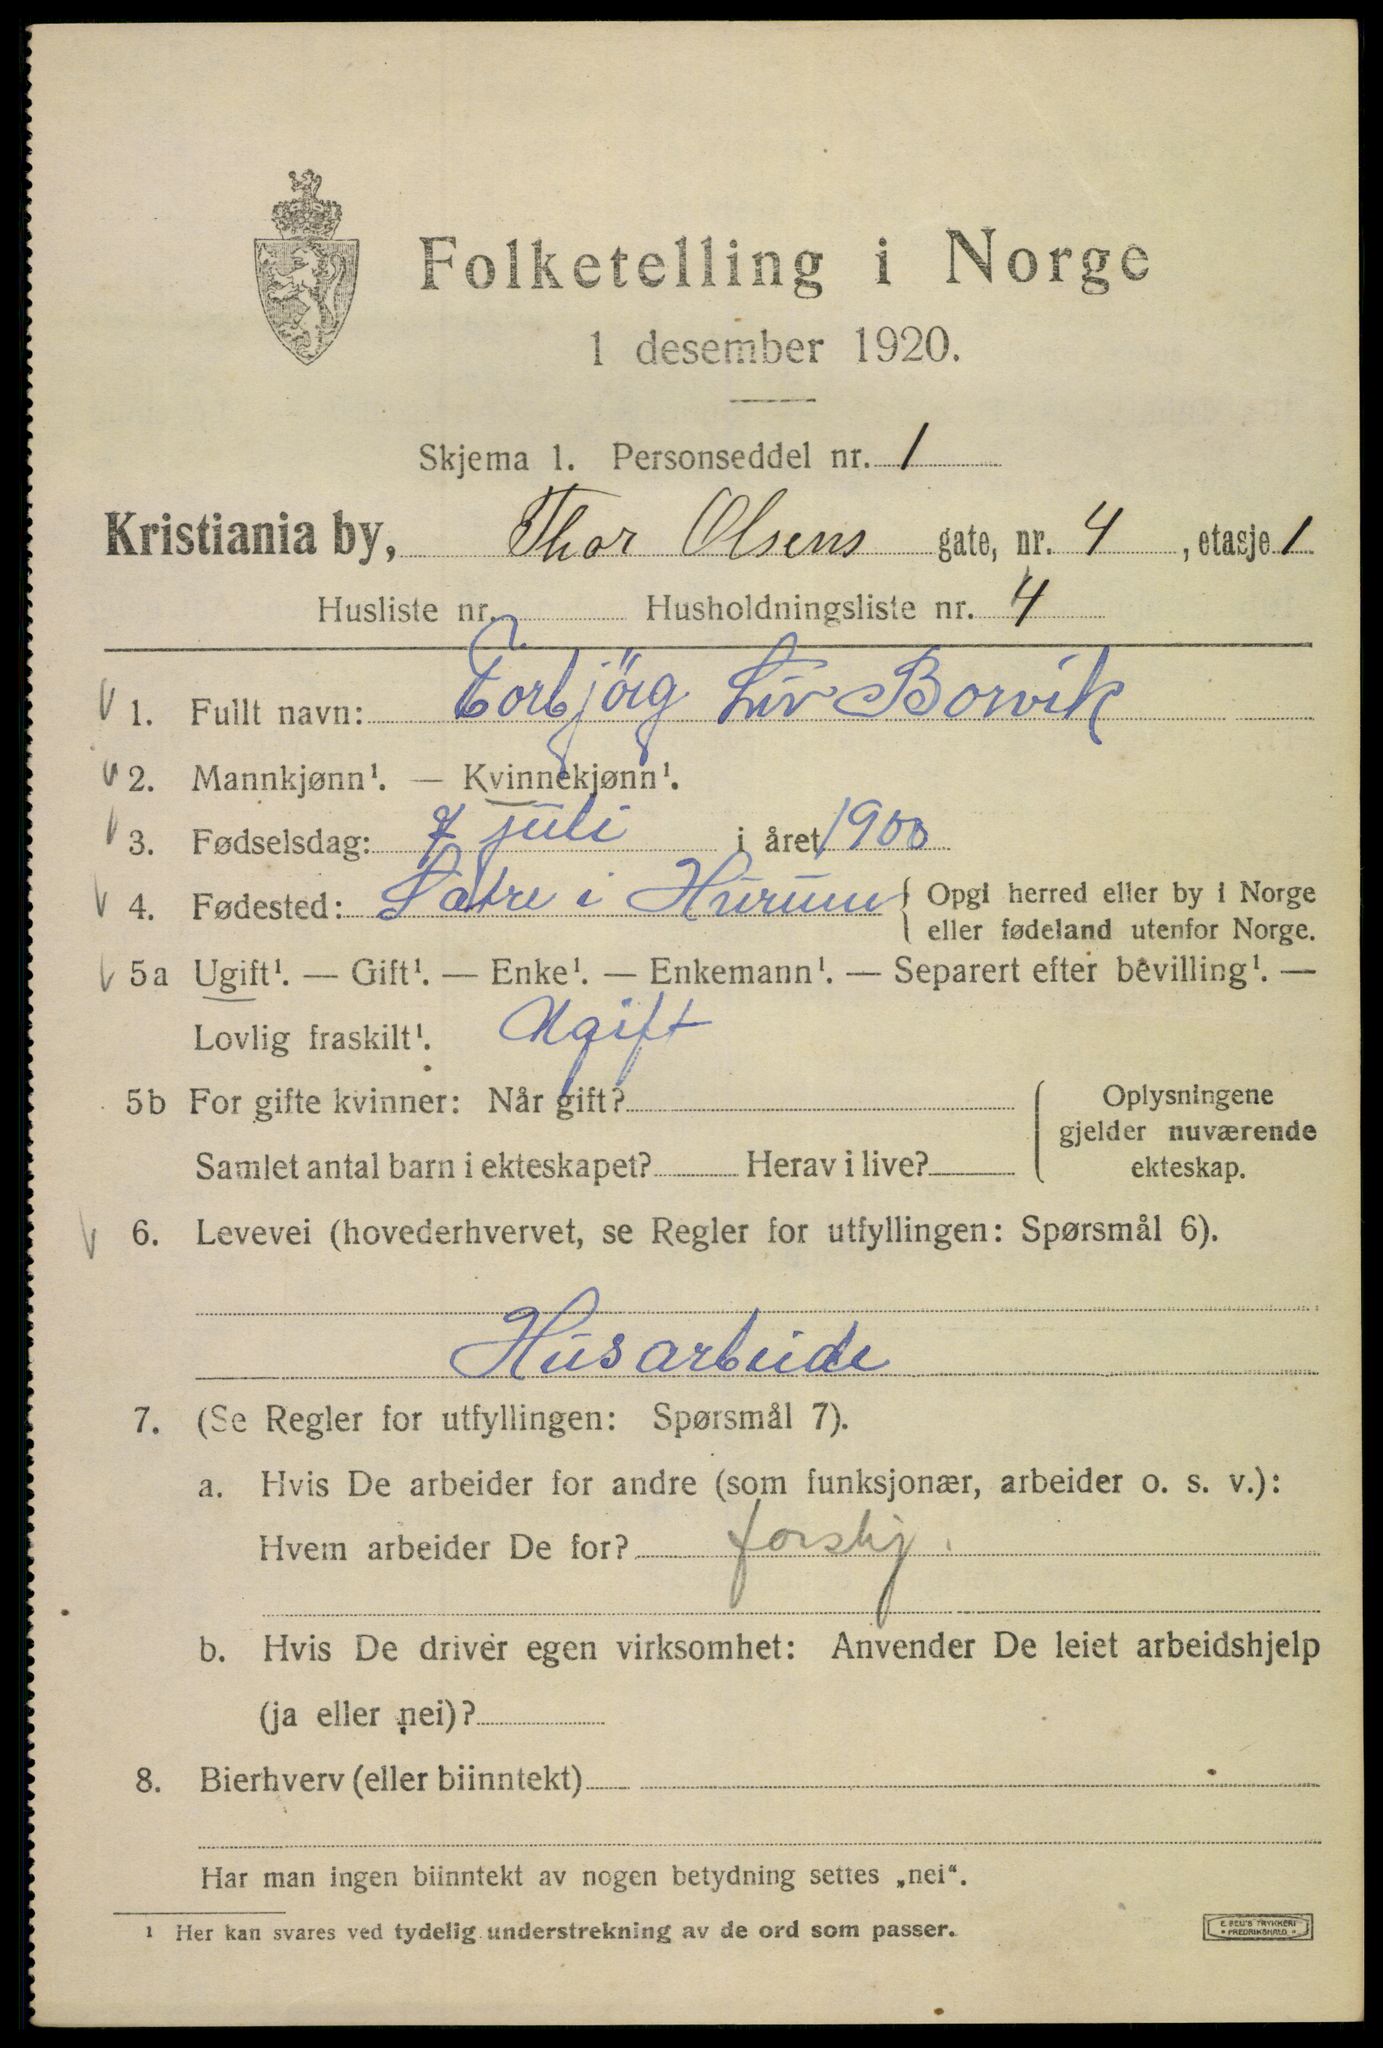 Folketelling i Norge
1 desember 1920.
Skjema 1. Personseddel nr. 1
Kristiania by, Thor Olsens gate, nr. 4, etasje 1
Husliste nr. Husholdningsliste nr. 4
1. Fullt navn: Torbjörg Liv Borvik
2. Mannkjønn¹. — Kvinnekjønn¹.
3. Fødselsdag: 7 juli i året 1900
4. Fødested: Sætre i Hurum { Opgi herred eller by i Norge
eller fødeland utenfor Norge.
5a Ugift¹. — Gift¹. — Enke¹. — Enkemann¹. — Separert efter bevilling¹. —
Lovlig fraskilt¹. Ugift
5b For gifte kvinner: Når gift?
Samlet antal barn i ekteskapet? Herav i live?
Oplysningene
gjelder nuværende
ekteskap.
6. Levevei (hovederhvervet, se Regler for utfyllingen: Spørsmål 6).
Husarbeide
7. (Se Regler for utfyllingen: Spørsmål 7).
a. Hvis De arbeider for andre (som funksjonær, arbeider o. s. v.):
Hvem arbeider De for? forskj.
b. Hvis De driver egen virksomhet: Anvender De leiet arbeidshjelp
(ja eller nei)?
8. Bierhverv (eller biinntekt)
Har man ingen biinntekt av nogen betydning settes „nei“.
¹ Her kan svares ved tydelig understrekning av de ord som passer.
E. SEM'S TRYKKERI
"FREDRIKSHALD"